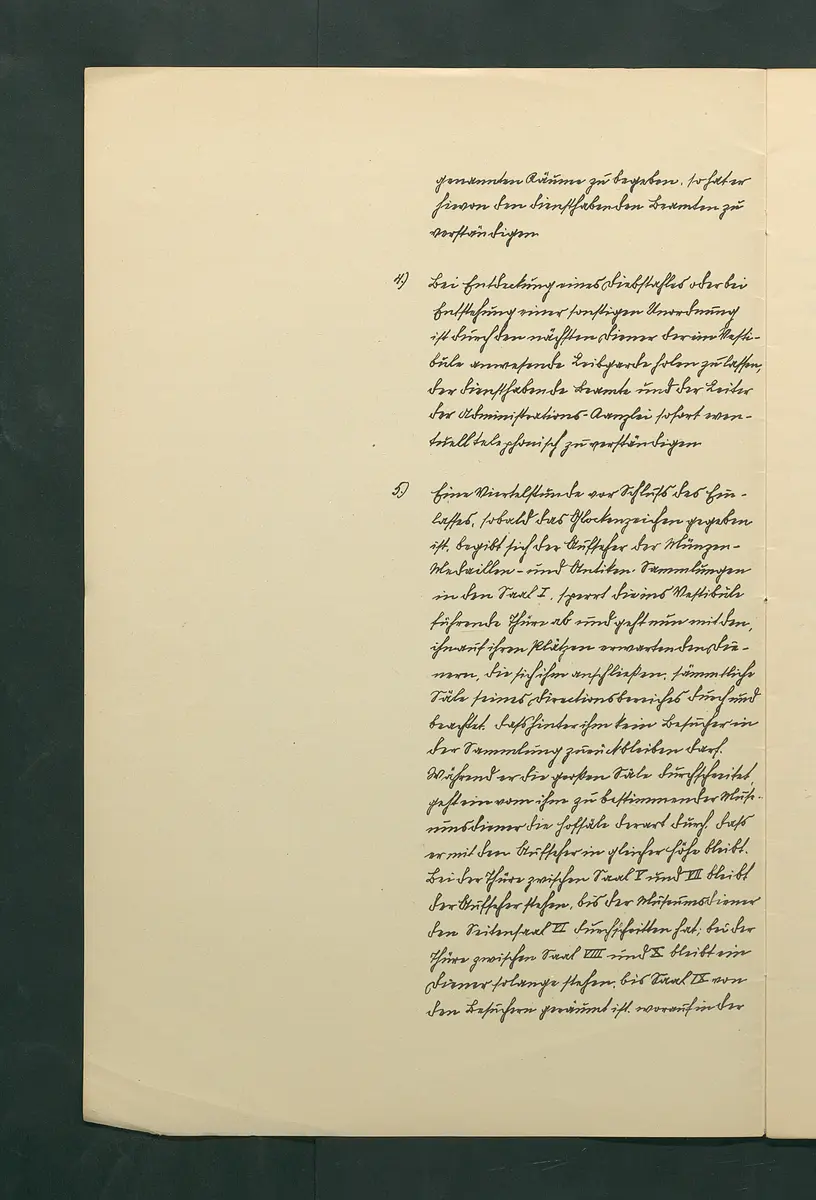 genannten Räume zu begeben, so hat er
hievon den diensthabenden Beamten zu
verständigen.
4.) Bei Entdeckung eines Diebstahles oder bei
Entstehung einer sonstigen Unordnung
ist durch den nächsten Diener der im Vesti-
bule anwesende Leibgarde holen zu lassen,
der diensthabende Beamte und der Leiter
der Administrations-Kanzlei sofort even-
tuell telephonisch zu verständigen.
5.) Eine Viertelstunde vor Schluſs des Ein-
lasses, sobald das Glockenzeichen gegeben
ist, begibt sich der Aufseher der Münzen-
Medaillen- und Antiken-Sammlungen
in den Saal I, sperrt die ins Vestibule
führende Thüre ab und geht nun mit den,
ihn auf ihren Plätzen erwartenden Die-
nern, die sich ihm anschließen, sämmtliche
Säle seines Directionsbereiches durch und
beachtet, dass hinter ihm kein Besucher in
der Sammlung zurückbleiben darf.
Während er die großen Säle durchschreitet,
geht ein vom ihm zu bestimmender Muse-
umsdiener die Hofsäle derart durch, dass
er mit dem Aufseher in gleicher Höhe bleibt.
Bei der Thüre zwischen Saal V und VII bleibt
der Aufseher stehen, bis der Museumsdiener
den Seitensaal VI durchschritten hat; bei der
Thüre zwischen Saal VIII und X bleibt ein
Diener solange stehen, bis Saal IX von
den Besuchern geräumt ist, worauf in der